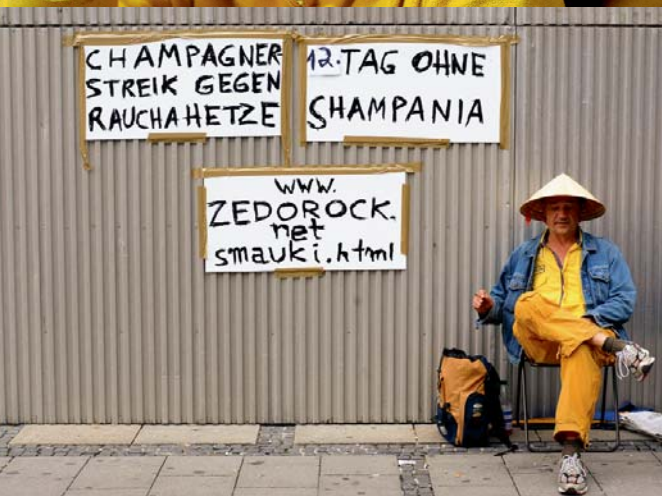 CHAMPAGNER
STREIK GEGEN
RAUCHAHETZE
12.TAG OHNE
SHAMPANIA
WWW.
ZEDOROCK.
net
smauki.html